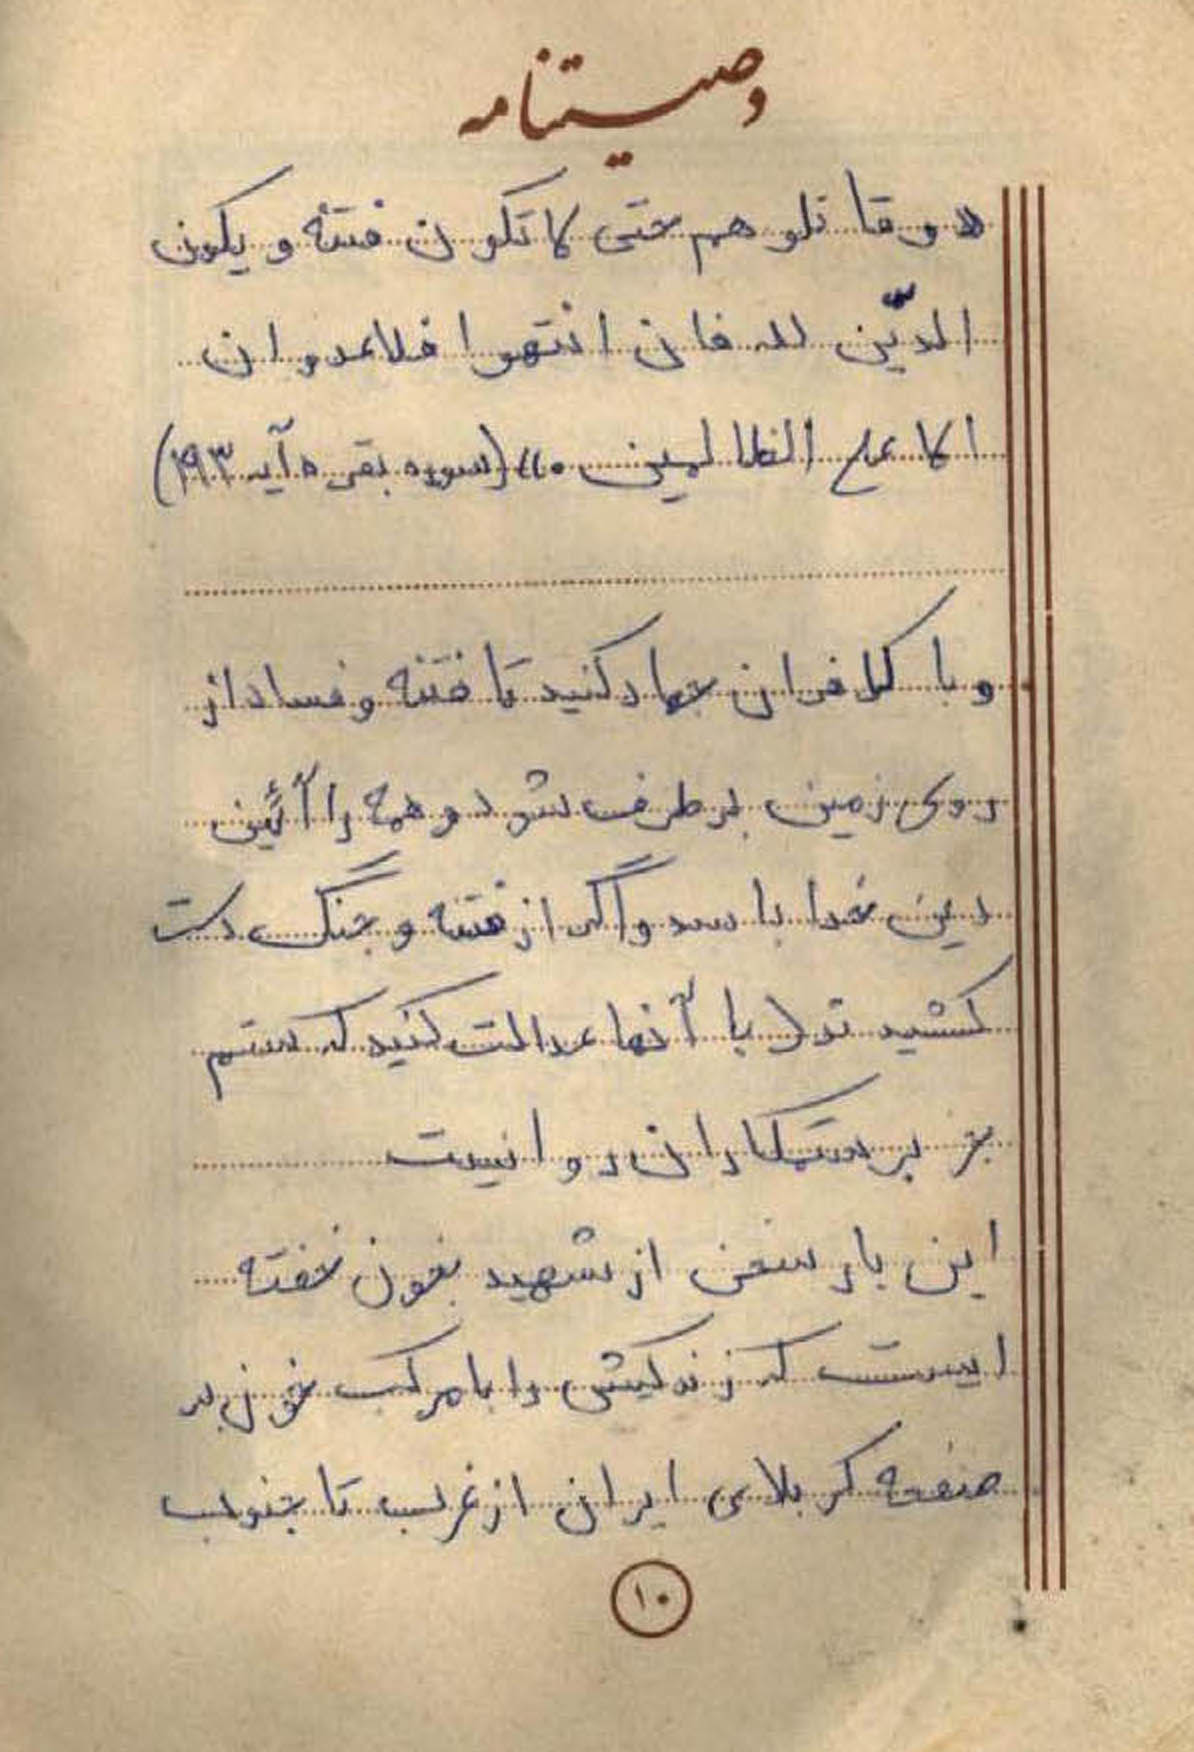 وصیتنامه
«وقاتلوهم حتی لا تکون فتنه و یکون
الدّین لله فان انتهوا فلاعدوان
الا علی الظالمین.» (سوره بقره آیه ۱۹۳)
و با کافران جهاد کنید تا فتنه و فساد از
روی زمین برطرف شود و همه را آئین
دین خدا باشد و اگر از فتنه و جنگ دست
کشیدند با آنها عدالت کنید که ستم
جز بر ستمکاران روا نیست
این بار سخن از شهید بخون خفته
ایست که زندگیش را با مرکب خون بر
صفحه کربلای ایران از غرب تا جنوب
۱۰